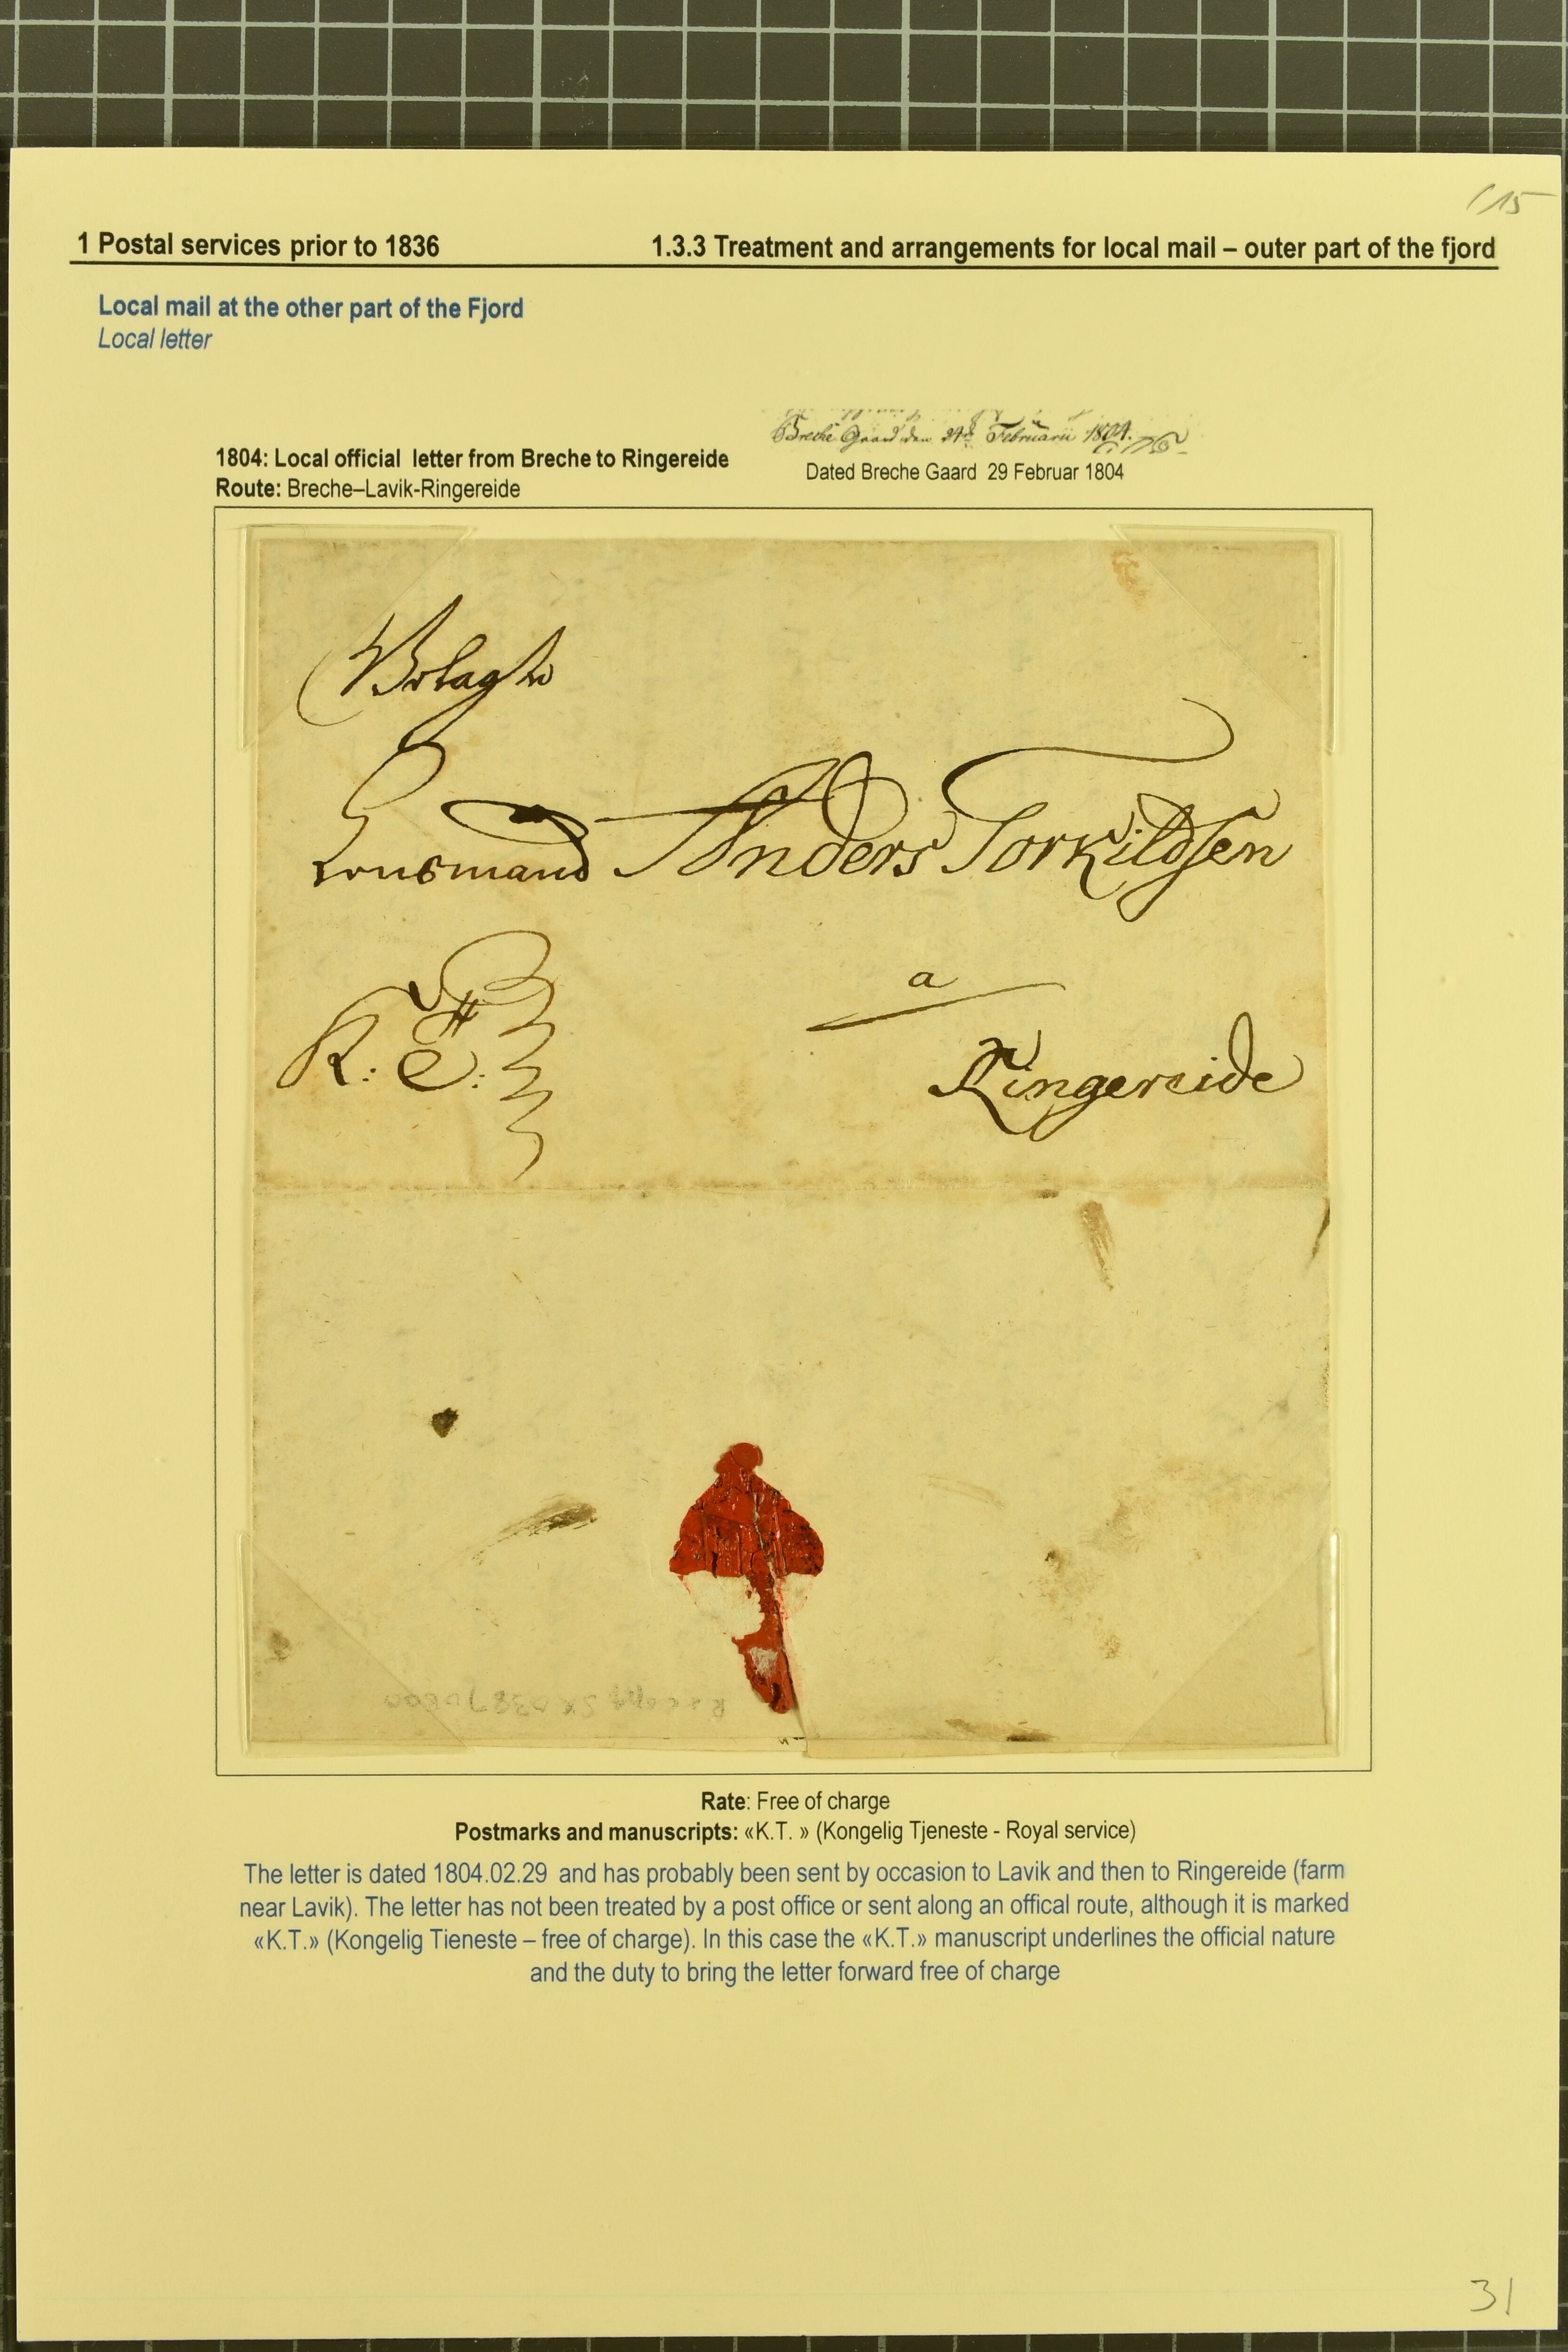 /15
1 Postal services prior to 1836
1.3.3 Treatment and arrangements for local mail – outer part of the fjord
Local mail at the other part of the Fjord
Local letter
Breche Gaard den Februarii 1804.
Dated Breche Gaard 29 Februar 1804
1804: Local official letter from Breche to Ringereide
Route: Breche–Lavik-Ringereide
Anders Torkildsen
K: T:
a
Ringereide
Rate: Free of charge
Postmarks and manuscripts: «K.T. » (Kongelig Tjeneste - Royal service)
The letter is dated 1804.02.29 and has probably been sent by occasion to Lavik and then to Ringereide (farm
near Lavik). The letter has not been treated by a post office or sent along an offical route, although it is marked
«K.T.» (Kongelig Tieneste – free of charge). In this case the «K.T.» manuscript underlines the official nature
and the duty to bring the letter forward free of charge
31